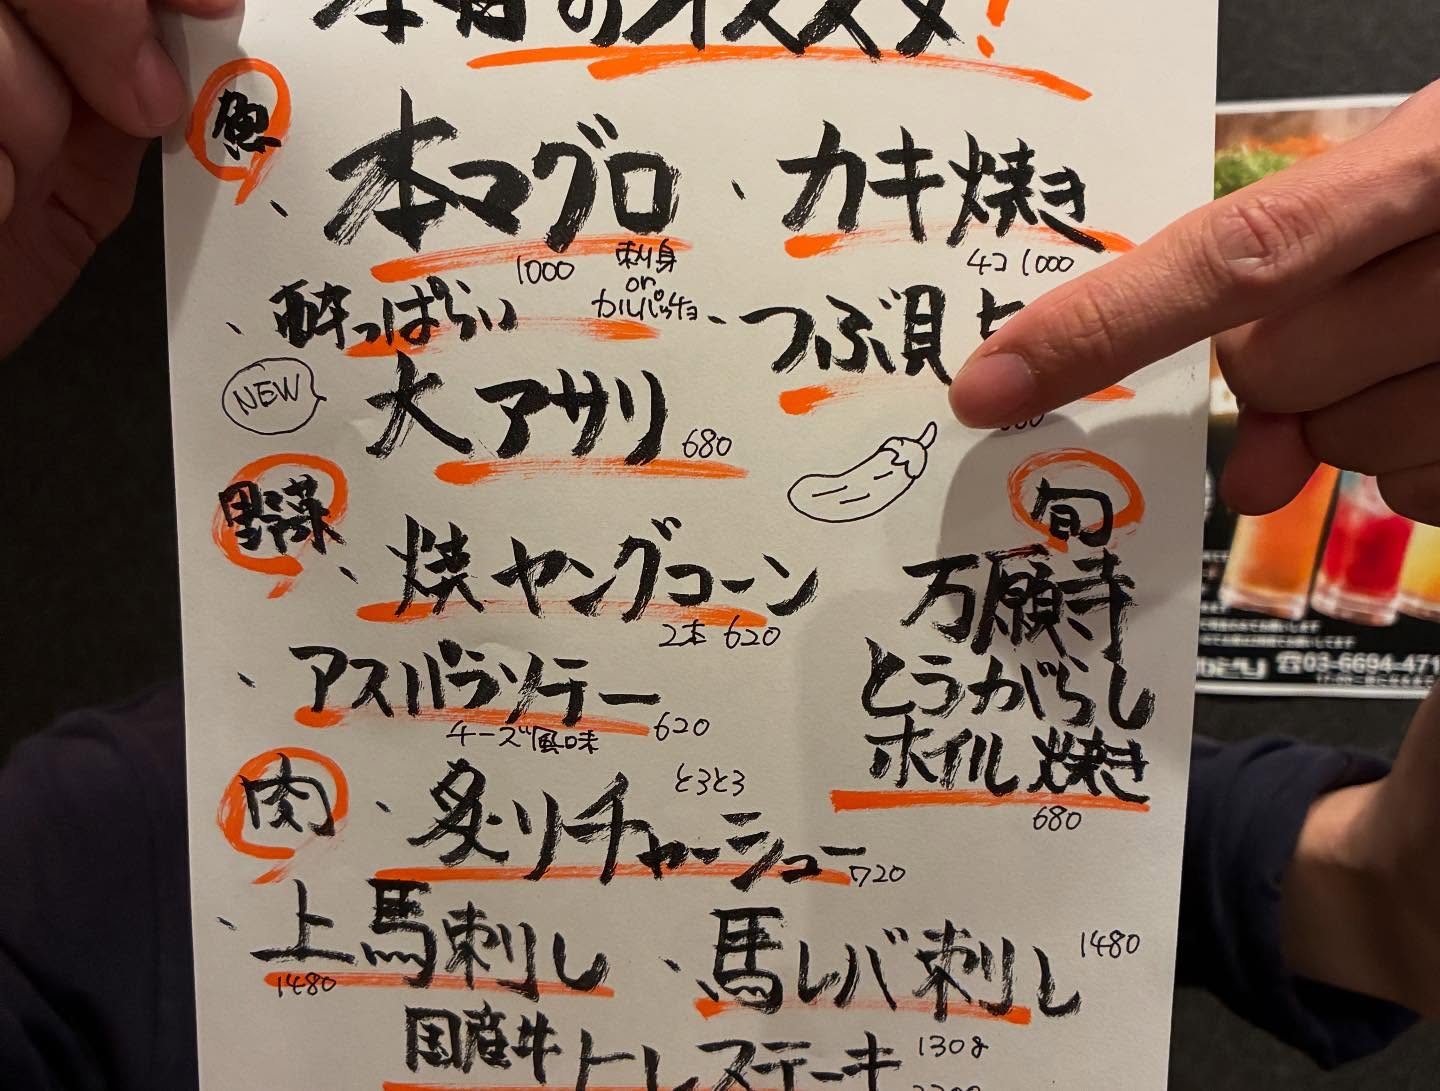 本日のオススメ!
魚
、本マグロ
1000 刺身
or
カルパッチョ
、カキ焼き
4コ 1000
、酔っぱらい
大アサリ 680
NEW
、つぶ貝
野菜
、焼ヤングコーン
2本 620
、アスパラソテー
チーズ風味 620
旬
万願寺
とうがらし
ホイル焼き
680
肉
、炙りチャーシュー
とろとろ
720
、上馬刺し
1480
、馬レバ刺し 1480
国産牛 130g
☎03-6694-471